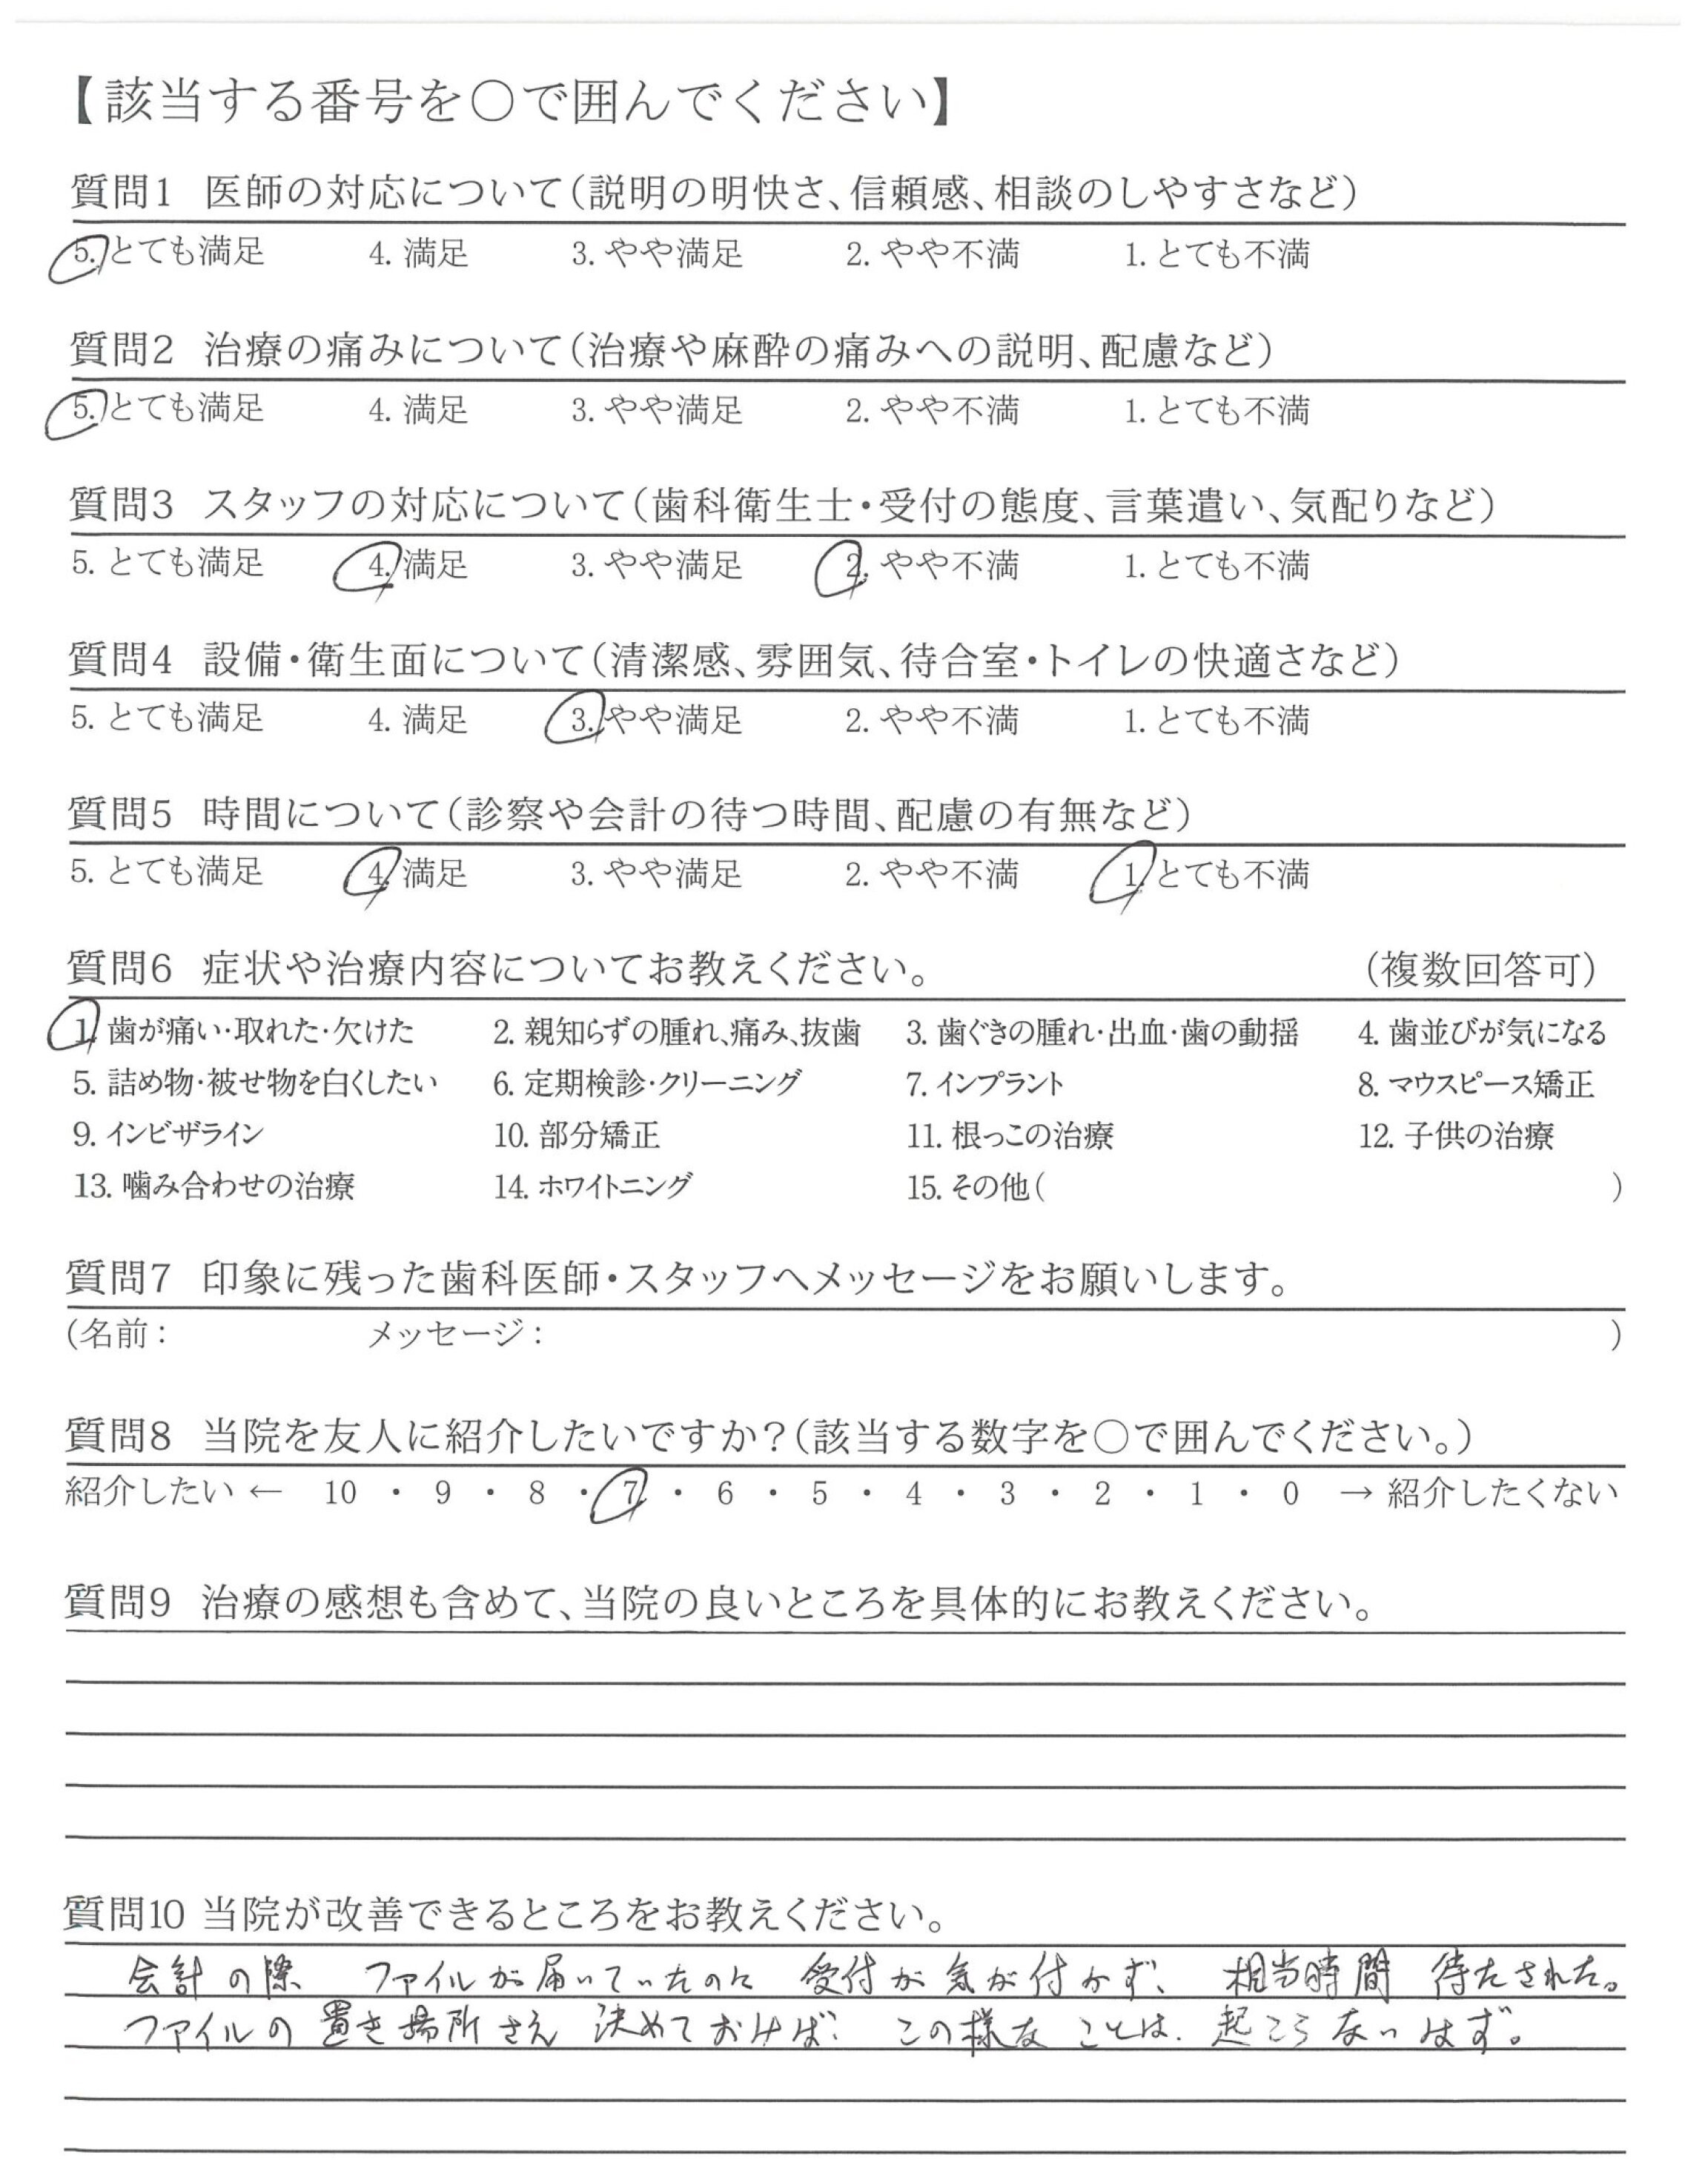 【該当する番号を○で囲んでください】
質問1 医師の対応について(説明の明快さ、信頼感、相談のしやすさなど)
5. とても満足 4. 満足 3. やや満足 2. やや不満 1. とても不満
質問2 治療の痛みについて(治療や麻酔の痛みへの説明、配慮など)
5. とても満足 4. 満足 3. やや満足 2. やや不満 1. とても不満
質問3 スタッフの対応について(歯科衛生士・受付の態度、言葉遣い、気配りなど)
5. とても満足 4. 満足 3. やや満足 2. やや不満 1. とても不満
質問4 設備・衛生面について(清潔感、雰囲気、待合室・トイレの快適さなど)
5. とても満足 4. 満足 3. やや満足 2. やや不満 1. とても不満
質問5 時間について(診察や会計の待つ時間、配慮の有無など)
5. とても満足 4. 満足 3. やや満足 2. やや不満 1. とても不満
質問6 症状や治療内容についてお教えください。 (複数回答可)
1. 歯が痛い・取れた・欠けた 2. 親知らずの腫れ、痛み、抜歯 3. 歯ぐきの腫れ・出血・歯の動揺 4. 歯並びが気になる
5. 詰め物・被せ物を白くしたい 6. 定期検診・クリーニング 7. インプラント 8. マウスピース矯正
9. インビザライン 10. 部分矯正 11. 根っこの治療 12. 子供の治療
13. 噛み合わせの治療 14. ホワイトニング 15. その他( )
質問7 印象に残った歯科医師・スタッフへメッセージをお願いします。
(名前: メッセージ: )
質問8 当院を友人に紹介したいですか?(該当する数字を○で囲んでください。)
紹介したい ← 10 ・ 9 ・ 8 ・ 7 ・ 6 ・ 5 ・ 4 ・ 3 ・ 2 ・ 1 ・ 0 → 紹介したくない
質問9 治療の感想も含めて、当院の良いところを具体的にお教えください。
質問10 当院が改善できるところをお教えください。
会計の際 ファイルが届いていたのに 受付が気が付かず、 相当時間 待たされた。
ファイルの置き場所さえ 決めておけば、 この様な ことは、起こらないはず。